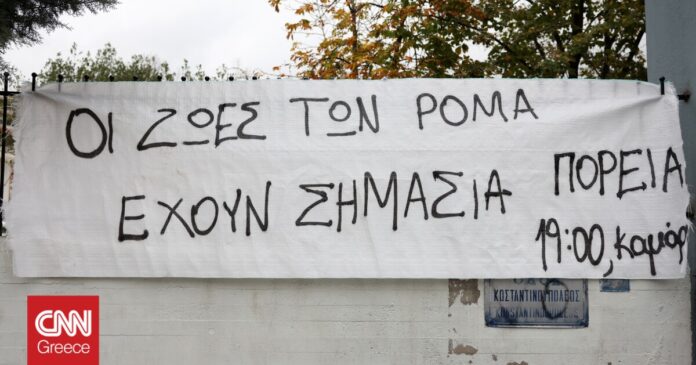 ΟΙ ΖΩΕΣ ΤΩΝ ΡΟΜΑ
ΕΧΟΥΝ ΣΗΜΑΣΙΑ
ΠΟΡΕΙΑ
19:00, καμάρ
ΚΩΣΤΑΝΤΙΝΟΥΠΟΛΕΩΣ
CNN
Greece